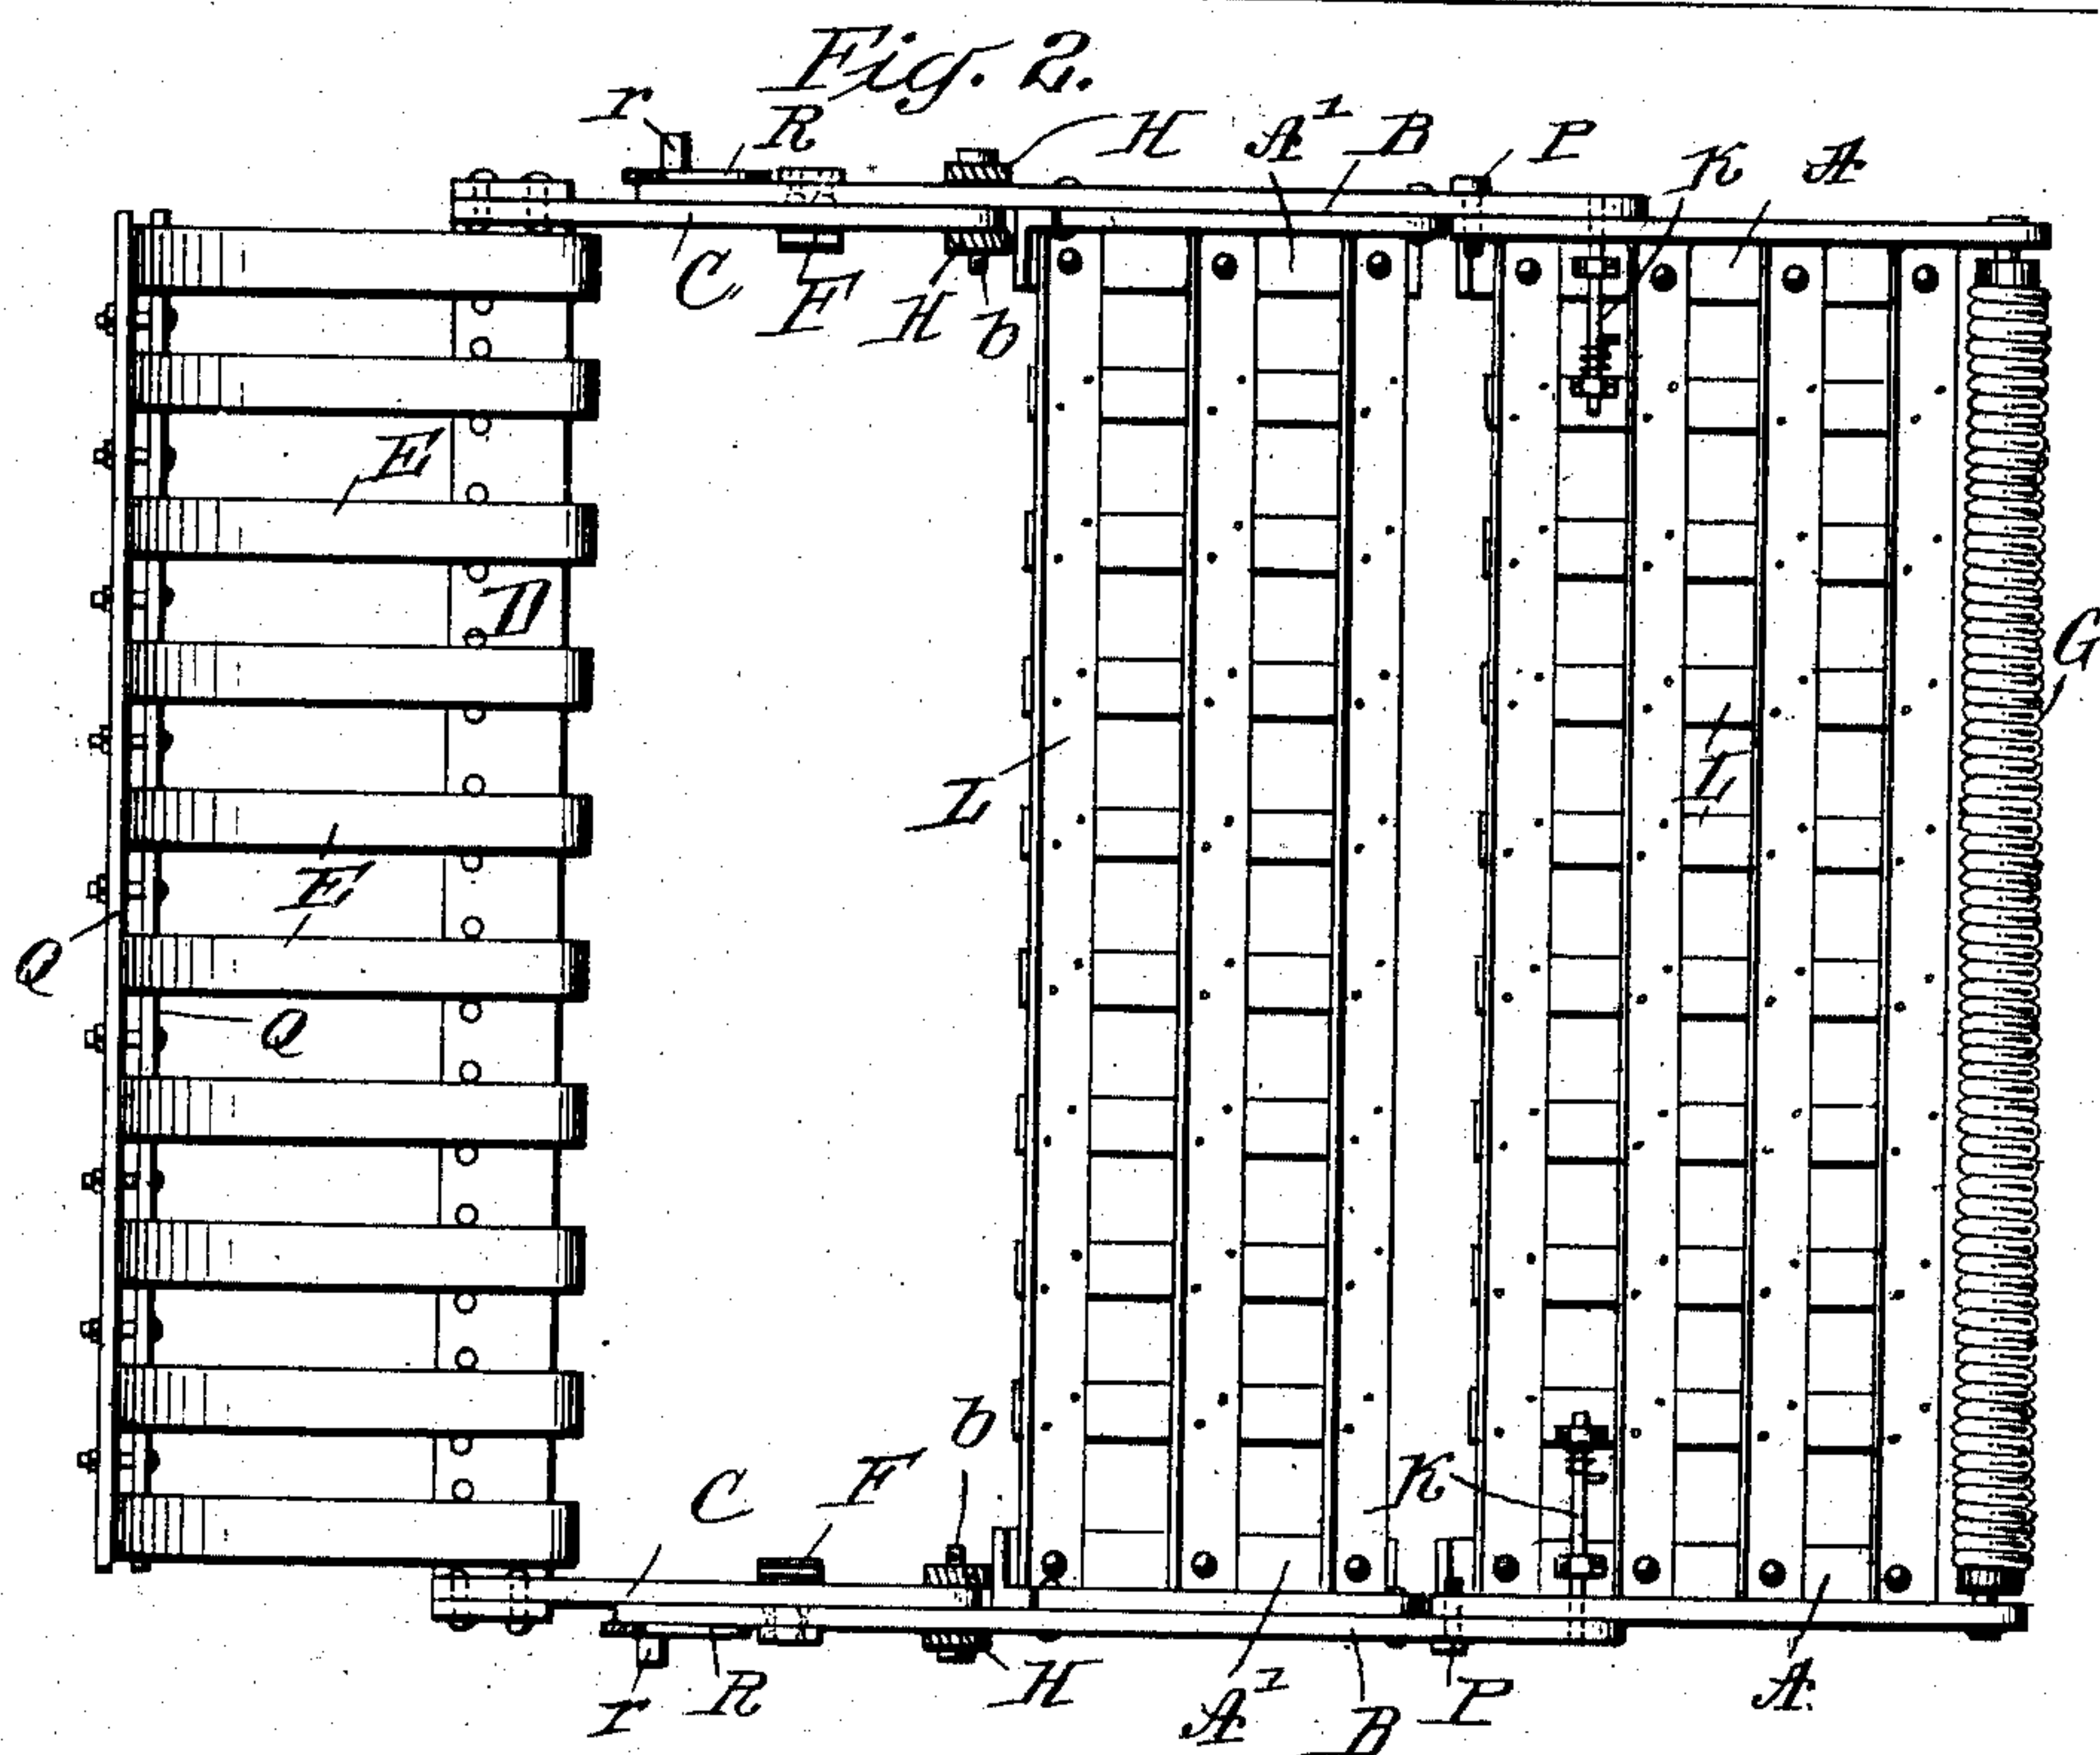 Fig. 2.
r R H A¹ B P K A
C F H b
E
D
G
L L
E
Q
Q
b
C F K
r R H A¹ B P A